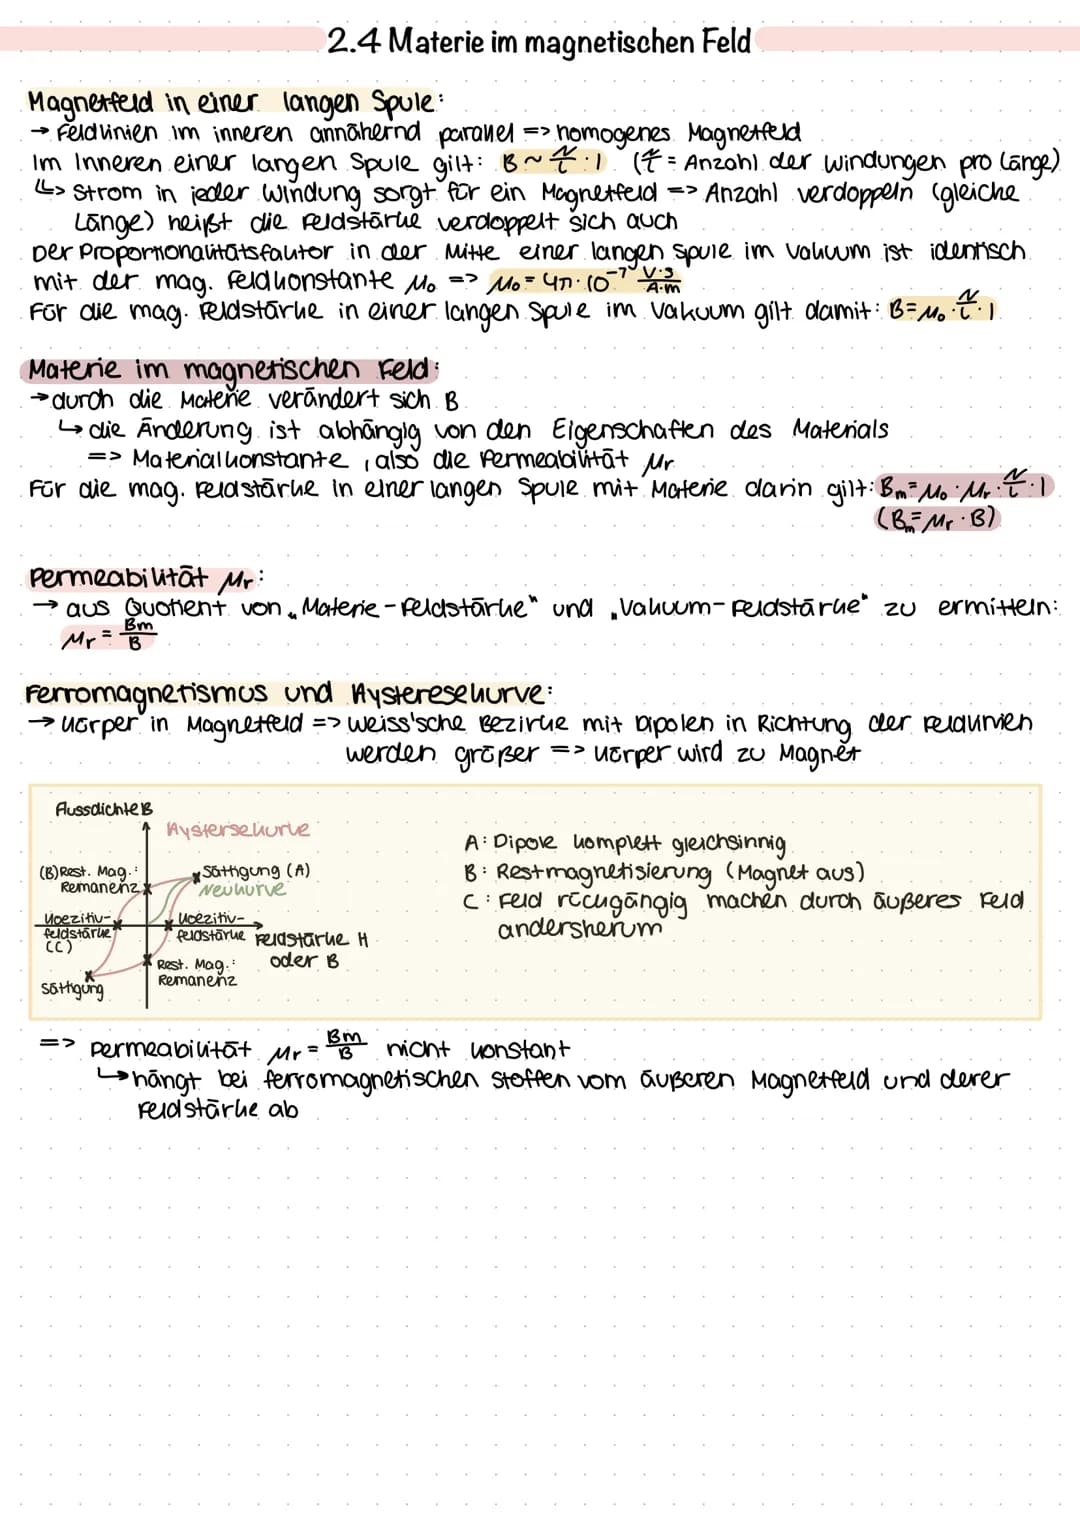 2.4 Materie im magnetischen Feld
Magnetfeld in einer langen Spule:
→ Feldlinien im inneren annähernd parallel => homogenes Magnetfeld
Im Inneren einer langen Spule gilt: B ~ N/l · I (N/l = Anzahl der Windungen pro Länge)
↳> Strom in jeder Windung sorgt für ein Magnetfeld => Anzahl verdoppeln (gleiche
Länge) heißt die Feldstärke verdoppelt sich auch
Der Proportionalitätsfaktor in der Mitte einer langen Spule im Vakuum ist identisch
mit der mag. Feldkonstante μ₀ => μ₀ = 4π · 10⁻⁷ V·s/A·m
Für die mag. Feldstärke in einer langen Spule im Vakuum gilt damit: B = μ₀ · N/l · I
Materie im magnetischen Feld:
→ durch die Materie verändert sich B
↳ die Änderung ist abhängig von den Eigenschaften des Materials
=> Materialkonstante, also die Permeabilität μr
Für die mag. Feldstärke in einer langen Spule mit Materie darin gilt: Bm = μ₀ · μr · N/l · I
(Bm = μr · B)
Permeabilität μr:
→ aus Quotient von „Materie-Feldstärke" und „Vakuum-Feldstärke" zu ermitteln:
μr = Bm/B
Ferromagnetismus und Hysteresekurve:
→ Körper in Magnetfeld => weiss'sche Bezirke mit Dipolen in Richtung der Feldlinien
werden größer => Körper wird zu Magnet
Flussdichte B
Hystersekurve
(B) Rest. Mag.:
Remanenz
Sättigung (A)
Neukurve
Koezitiv-
feldstärke
(C)
Koezitiv-
feldstärke
Feldstärke H
oder B
Rest. Mag.:
Remanenz
Sättigung
A: Dipole komplett gleichsinnig
B: Restmagnetisierung (Magnet aus)
C: Feld rückgängig machen durch äußeres Feld
andersherum
=> Permeabilität μr = Bm/B nicht konstant
↳ hängt bei ferromagnetischen Stoffen vom äußeren Magnetfeld und derer
Feldstärke ab